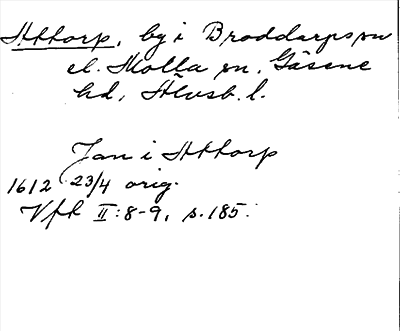 Attorp, by i Broddarps sn
el. Molla sn, Gäsene
hd, Älvsb. l.
Jan i Attorp
1612 23/4 orig.
Vfk II:8-9, s. 185.